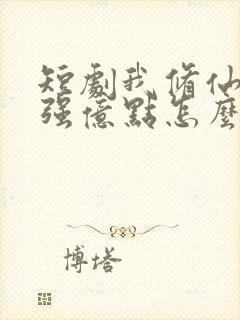 短劇我修仙
强億點怎麼
博塔